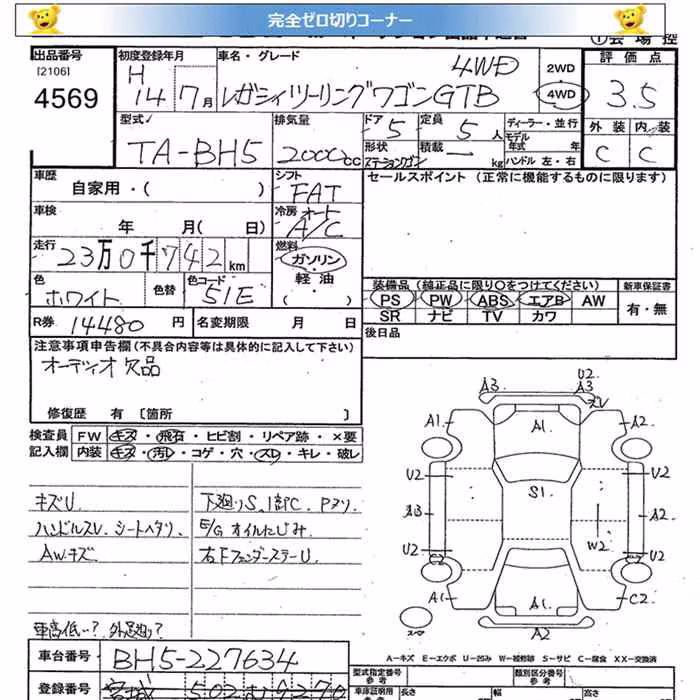 完全ゼロ切りコーナー
出品番号
[2106]
4569
初度登録年月
H
14年 7月
車名・グレード
4WD
レガシィツーリングワゴンGTB
2WD
4WD
①会場控
評価点
3.5
外装 内装
C C
型式
TA-BH5
排気量
2000cc
ドア 5
形状
ステーションワゴン
定員 5人
積載 ー kg
ディーラー・並行
モデル年式 年
ハンドル 左・右
車歴
自家用・( )
シフト
FAT
セールスポイント (正常に機能するものに限ります)
車検
年 月( 日)
冷房 オート
A/C
走行
23万0千742km
燃料
ガソリン
軽油
( )
色
ホワイト
色替
色コード
51E
装備品 (純正品に限り○をつけてください)
PS PW ABS エアB AW
SR ナビ TV カワ
新車保証書
有・無
R券 14480円
名変期限 月 日
後日品
注意事項申告欄 (不具合内容等は具体的に記入して下さい)
オーディオ欠品
修復歴 有 [箇所 ]
検査員記入欄
FW キズ・飛石・ヒビ割・リペア跡・×要
内装 キズ・汚レ・コゲ・穴・スレ・キレ・破レ
キズU.
ハンドルスレ.シートヘタリ.
AWキズ
車高低い?.外品廻り?
下廻りS.1部C.Pヌリ
E/Gオイルにじみ
右Fフェンダーステー U.
A3 A3 U2 ズレ
A1 A1 A2
U2 U2
A3 S1 A2
W2
U2 U2
A1 A1 C2
A2
A―キズ E―エクボ U―凹み W―補修跡 S―サビ C―腐食 XX―交換済
車台番号
BH5-227634
登録番号
宮城 502
型式指定番号
類別区分番号
参考
車庫証明用
参考
長さ
幅
高さ